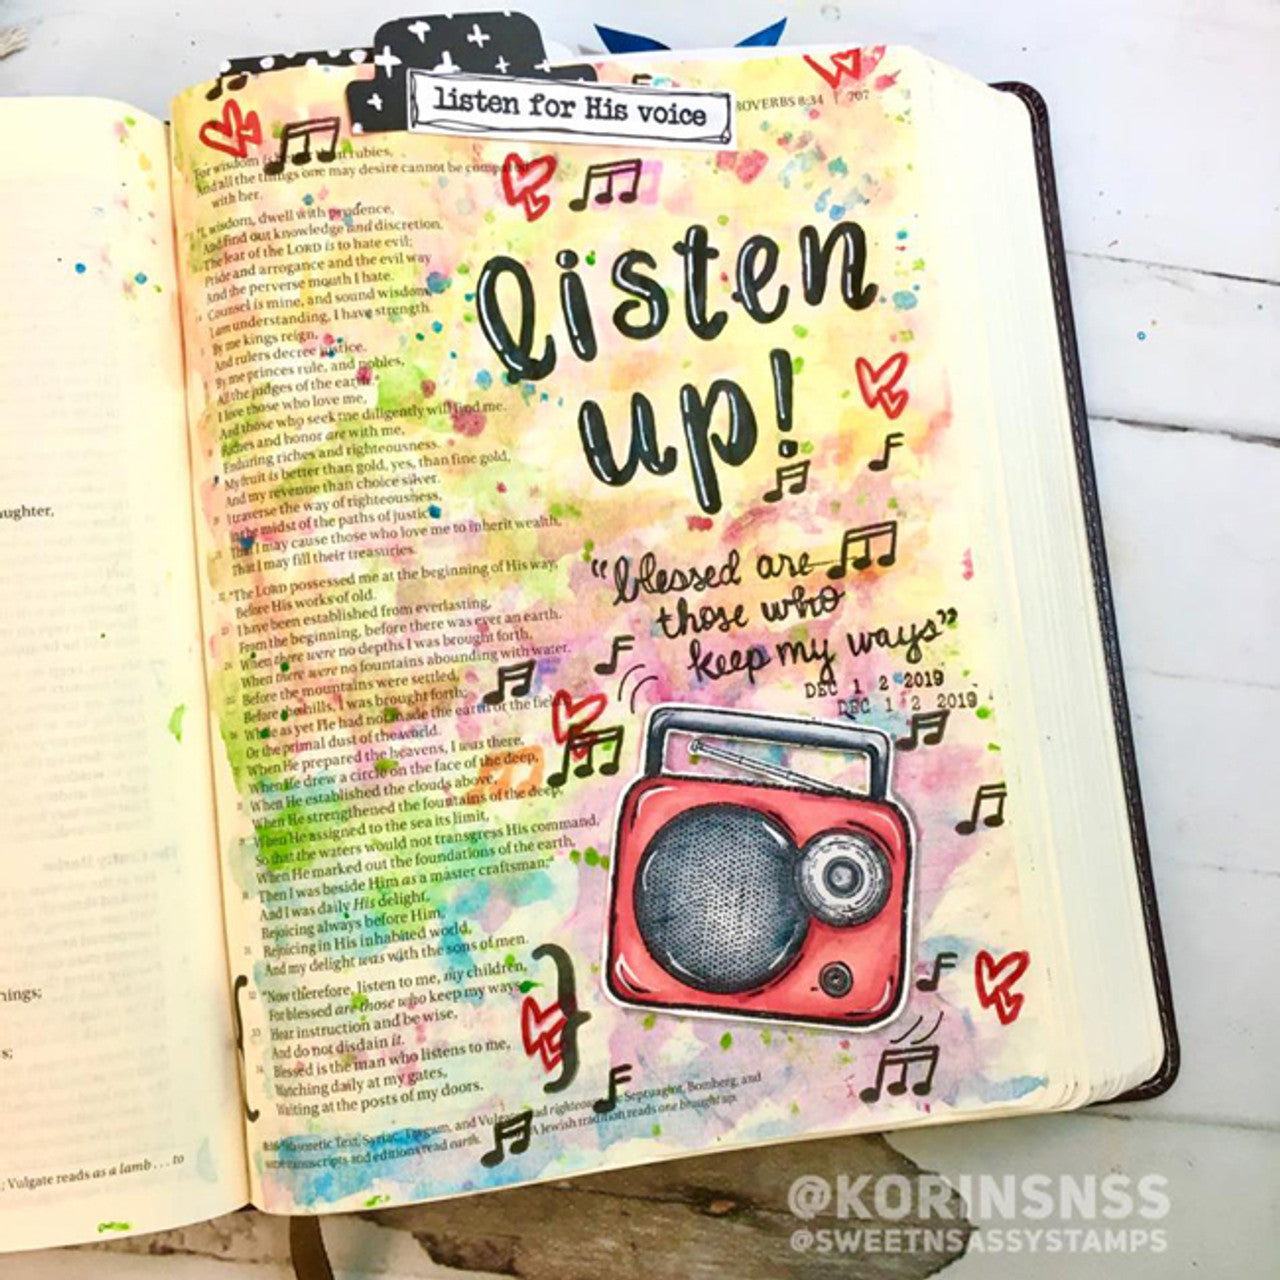 listen for His voice
ROVERBS 8:34 | 707
For wisdom is rubies,
And all the things one may desire cannot be compared
with her.
"I, wisdom, dwell with prudence,
And find out knowledge and discretion.
The fear of the LORD is to hate evil;
Pride and arrogance and the evil way
And the perverse mouth I hate.
Counsel is mine, and sound wisdom;
I am understanding, I have strength.
By me kings reign,
And rulers decree justice.
By me princes rule, and nobles,
All the judges of the earth.
I love those who love me,
And those who seek me diligently will find me.
Riches and honor are with me,
Enduring riches and righteousness.
My fruit is better than gold, yes, than fine gold,
And my revenue than choice silver.
I traverse the way of righteousness,
In the midst of the paths of justice,
That I may cause those who love me to inherit wealth,
That I may fill their treasuries.
"The LORD possessed me at the beginning of His way,
Before His works of old.
I have been established from everlasting,
From the beginning, before there was ever an earth.
When there were no depths I was brought forth,
When there were no fountains abounding with water.
Before the mountains were settled,
Before the hills, I was brought forth;
While as yet He had not made the earth or the fields,
Or the primal dust of the world.
When He prepared the heavens, I was there,
When He drew a circle on the face of the deep,
When He established the clouds above,
When He strengthened the fountains of the deep,
When He assigned to the sea its limit,
So that the waters would not transgress His command,
When He marked out the foundations of the earth,
Then I was beside Him as a master craftsman;
And I was daily His delight,
Rejoicing always before Him,
Rejoicing in His inhabited world,
And my delight was with the sons of men.
"Now therefore, listen to me, my children,
For blessed are those who keep my ways.
Hear instruction and be wise,
And do not disdain it.
Blessed is the man who listens to me,
Watching daily at my gates,
Waiting at the posts of my doors.
Masoretic Text, Syriac, Targum, and Vulgate read righteous Septuagint, Bomberg, and
manuscripts and editions read earth. A Jewish tradition reads one brought up.
listen
up!
"blessed are
those who
keep my ways"
DEC 1 2 2019
DEC 1 2 2019
aughter,
hings;
s;
; Vulgate reads as a lamb . . . to
@KORINSNSS
@SWEETNSASSYSTAMPS